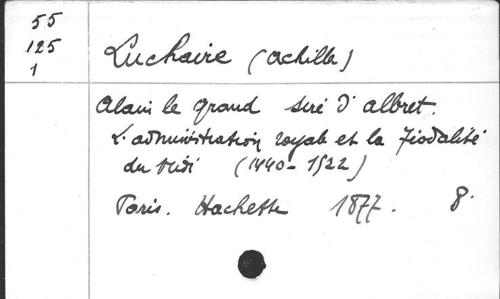 55
125
1
Luchaire (Achille)
Alain le grand sire d'albret.
L'administration royale et la féodalité
du Midi (1440-1522)
Paris. Hachette 1877. 8°